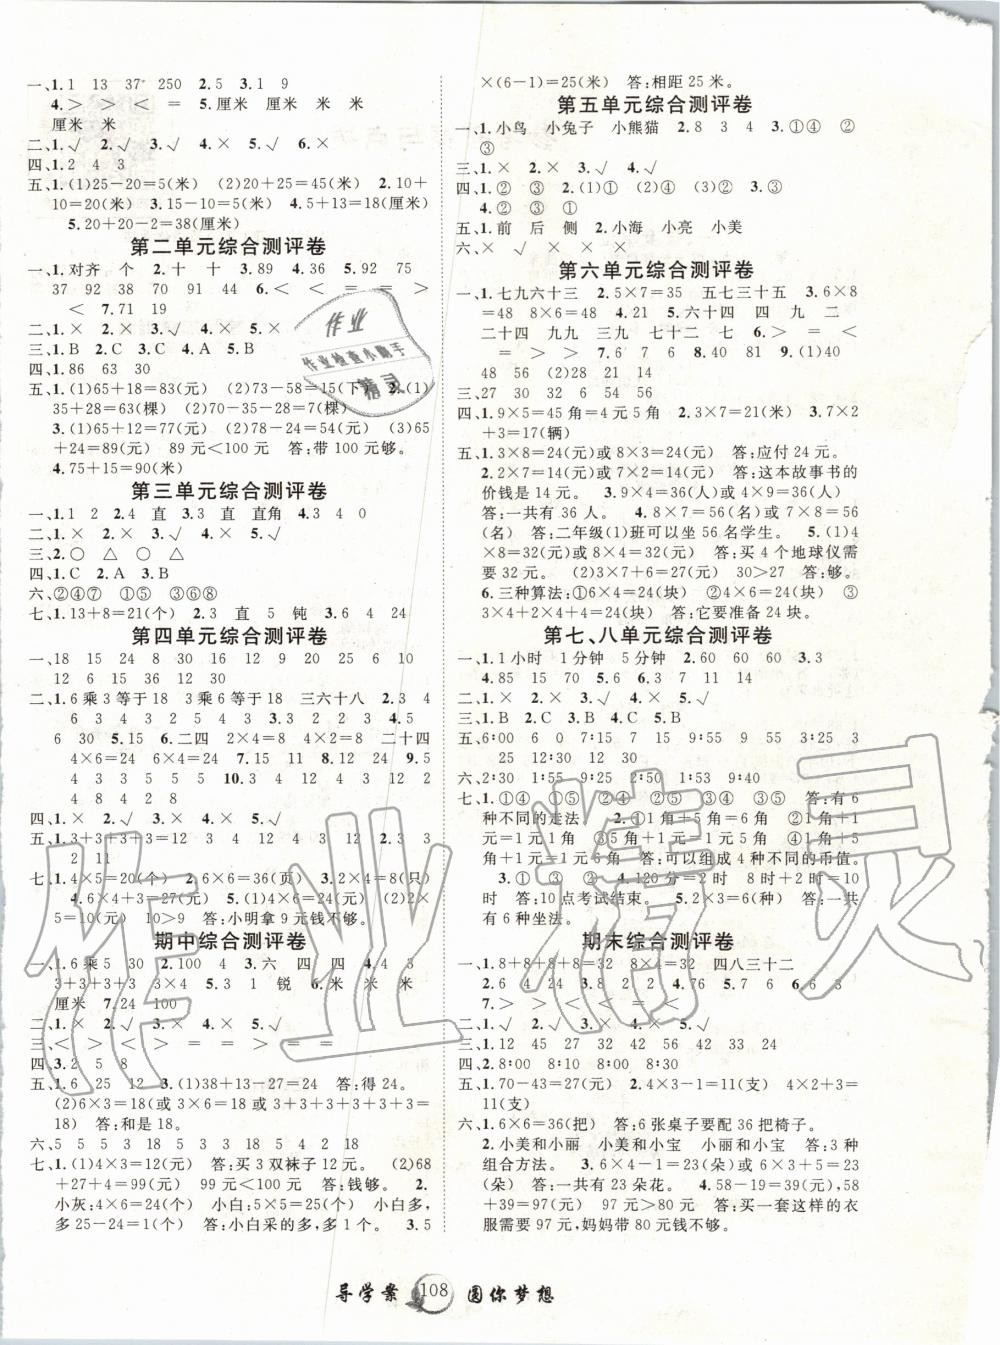 一、1. 1 13 37 250 2. 5 3. 1 9
4. > > < = 5. 厘米 厘米 米 米
厘米 米
二、1. √ 2. √ 3. √ 4. × 5. √ 6. ×
四、1. 2 4 3
五、1. (1)25－20=5(米) (2)20＋25=45(米) 2. 10＋
10=20(米) 3. 15－10=5(米) 4. 5＋13=18(厘米)
5. 20＋20－2=38(厘米)
第二单元综合测评卷
一、1. 对齐 个 2. 十 十 3. 89 4. 36 5. 92 75
37 92 38 70 91 44 6. < < = < >
< 7. 71 19
二、1. × 2. × 3. √ 4. × 5. ×
三、1. B 2. C 3. C 4. A 5. B
四、1. 86 63 30
五、1. (1)65＋18=83(元) (2)73－58=15(下) 2. (1)
35＋28=63(棵) (2)35－28=7(棵)
3. (1)12＋65=77(元) (2)78－24=54(元) (3)65
＋24=89(元) 89 元<100 元 答:带 100 元够。
4. 75＋15=90(米)
第三单元综合测评卷
一、1. 1 2 2. 4 直 3. 3 直 直角 4. 3 4 0
二、1. × 2. × 3. √ 4. × 5. √
三、2. ○ △ ○ △
四、1. C 2. A 3. B
六、②④⑦ ①⑤ ③⑥⑧
七、1. 13＋8=21(个) 2. 3 直 5 钝 3. 6 4 24
第四单元综合测评卷
一、18 15 24 8 30 16 12 9 20 25 10
12 6 15 36 12 30
二、1. 6乘3等于18 3乘6等于18 三六十八 2. 3 4
6 3 4 3 2 4 3. 3 2 2 3 4. 5
6 30 5. 15 6. 二四 2×4=8 4×2=8 二十四
4×6=24 6×4=24 7. 15 8. 12 24 9. 5
4 3 5 5 5 10. 3 4 3 4 12 2
4 8 4 2 8
四、1. × 2. √ 3. √ 4. × 5. √
五、1. 3＋3＋3＋3=12 3 4 12 4 3 12 2. 3 3
2 11
七、1. 4×5=20(个) 2. 6×6=36(页) 3. 2×4=8(只)
4. 6×4＋3=27(元) 5. (1)4×6=24(元) (2)2×
5=10(元) 10>9 答:小明拿 9 元钱不够。
期中综合测评卷
一、1. 6乘5 30 2. 100 4 3. 六 四 四 4. 4 3
3＋3＋3＋3 3×4 5. 3 1 锐 6. 米 米 米
厘米 7. 24 100
二、1. × 2. √ 3. × 4. × 5. √
三、< > > > = = = > > <
四、3. 2 5 8
五、1. 6 25 12 3. (1)38＋13－27=24 答:得 24。
(2)6×3=18 或 3×6=18 或 3＋3＋3＋3＋3＋3=
18) 答:和是 18。
六、5 5 5 3 18 5 3 5 4 2 18
七、1. (1)4×3=12(元) 答:买 3 双袜子 12 元。 (2)68
＋27＋4=99(元) 99 元<100 元 答:钱够。 2.
小灰:4×6=24(个) 小白:5×5=25(个) 小白多,
多 25－24=1(个) 答:小白采的多,多 1 个。 3. 5
×(6－1)=25(米) 答:相距 25 米。
第五单元综合测评卷
一、1. 小鸟 小兔子 小熊猫 2. 8 3 4 3. ①④ ②
③
三、1. × 2. × 3. √ 4. ×
四、1. ② ③ 2. (1)① (2)④ (2)② 3. ③
4. ② ③ ①
五、1. 前 后 侧 2. 小海 小亮 小美
六、× √ × × ×
第六单元综合测评卷
一、1. 七九六十三 2. 5×7=35 五七三十五 3. 6×8
=48 8×6=48 4. 21 5. 六十四 四 九 二
二十四 九九 三九 七七 七十二 6. > = <
= < > 7. > < = = 9. (1)40
48 56 (2)28 21 14
三、27 30 32 56 56 24
四、1. 9×5=45 角=4 元 5 角 2. 7×3=21 3. 7×2
＋3=17(辆)
五、1. 3×8=24(元)或 8×3=24(元) 答:应付 24 元。
2. 2×7=14(元)或 7×2=14(元) 答:这本故事书的
价钱是 14 元。 3. 9×4=36(人)或 4×9=36(人)
答:一共有 36 人。 4. 8×7=56(名)或 7×8=56
(名) 答:二年级(1)班可以坐 56 名学生。 5. (1)4
×8=32(元)或 8×4=32(元) 答:买 4 个地球仪需
要 32 元。 (2)3×7＋6=27(元) 30>27 答:够。
6. 三种算法:①6×4=24(块) ②4×6=24(块) ③
3×4＋2×4＋1×4=24(块) 答:它要准备 24 块。
第七、八单元综合测评卷
一、1. 1小时 1分钟 5分钟 2. 60 60 3. 3
4. 85 15 70 5. 6 6. 3 7 11 14
二、1. × 2. × 3. × 4. √ 5. √
三、1. B 2. C 3. A 4. C 5. B
五、6:00 6 0 7:15 7 15 9:55 9 55 3:
25 12:30 12 30
六、2:30 1:55 9:25 2:50 1:53 9:40
七、1. ①④ ①⑤ ②④ ②⑤ ③④ ③⑤ 答:有 6
种不同的走法 2. ①1角＋5角=6角 ②1角＋1
元=1元1角 ③5角＋1元=1元5角 ④1角＋5角
＋1元=1元6角 答:可以组成 4 种不同的币值。
3. ① ③ ② 4. 120 分=2 时 8时＋2时=10
时 答:10 点考试结束。 5. 2×3=6(种) 答:一共
有 6 种坐法。
期末综合测评卷
一、1. 8＋8＋8＋8=32 8×4=32 四八三十二
2. 6 4 24 4 4. 76 5. 7 6. 6 3
7. > > < < = <
二、1. √ 2. √ 3. × 4. √ 5. √
三、12 45 27 32 42 56 44 33 24
四、2. 8:00 8:10 8:00 8:30
五、1. 70－43=27(元) 2. 4×3－1=11(支) 4×2＋3=
11(支)
六、1. 6×6=36(把) 答:6 张桌子要配 36 把椅子。
2. 小美和小丽 小美和小宝 小丽和小宝 答:3 种
组合方法。 3. 6×4－1=23(朵)或 3×6＋5=23
(朵) 答:一共有 23 朵花。 4. 58－19=39(元) 58
＋39=97(元) 97元>80元 答:买一套这样的衣
服需要 97 元,妈妈带 80 元钱不够。
导学案 108 圆你梦想
作业
作业检查小助手
精灵
作业精灵